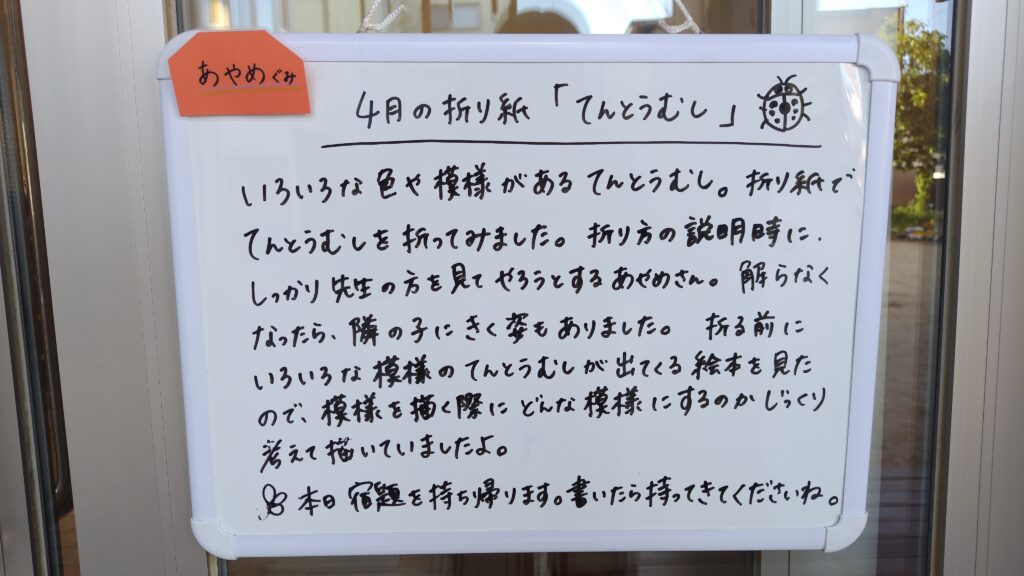 あやめぐみ
4月の折り紙「てんとうむし」
いろいろな色や模様があるてんとうむし。折り紙で
てんとうむしを折ってみました。折り方の説明時に、
しっかり先生の方を見てやろうとするあやめさん。解らなく
なったら、隣の子にきく姿もありました。折る前に
いろいろな模様のてんとうむしが出てくる絵本を見た
ので、模様を描く際にどんな模様にするのかじっくり
考えて描いていましたよ。
本日宿題を持ち帰ります。書いたら持ってきてくださいね。